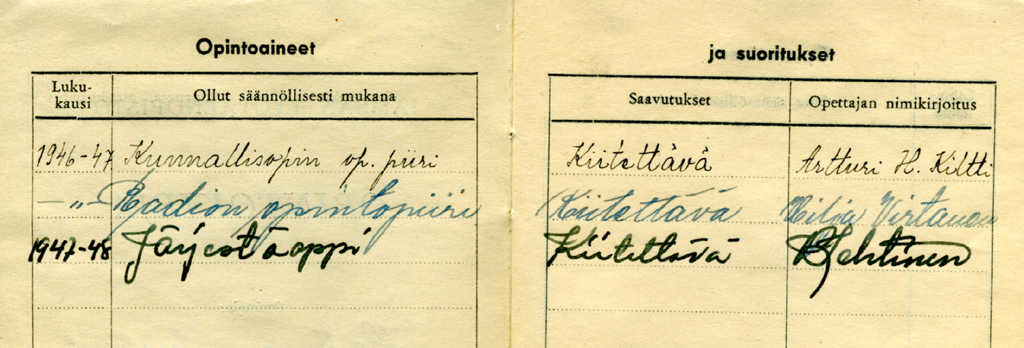 Opintoaineet ja suoritukset
Luku-
kausi
Ollut säännöllisesti mukana
Saavutukset
Opettajan nimikirjoitus
1946-47 Kunnallisopin op. piiri Kiitettävä Artturi H. Kiltti
-„- Radion opintopiiri Kiitettävä Virtanen
1947-48 Järjestöoppi Kiitettävä Lehtinen